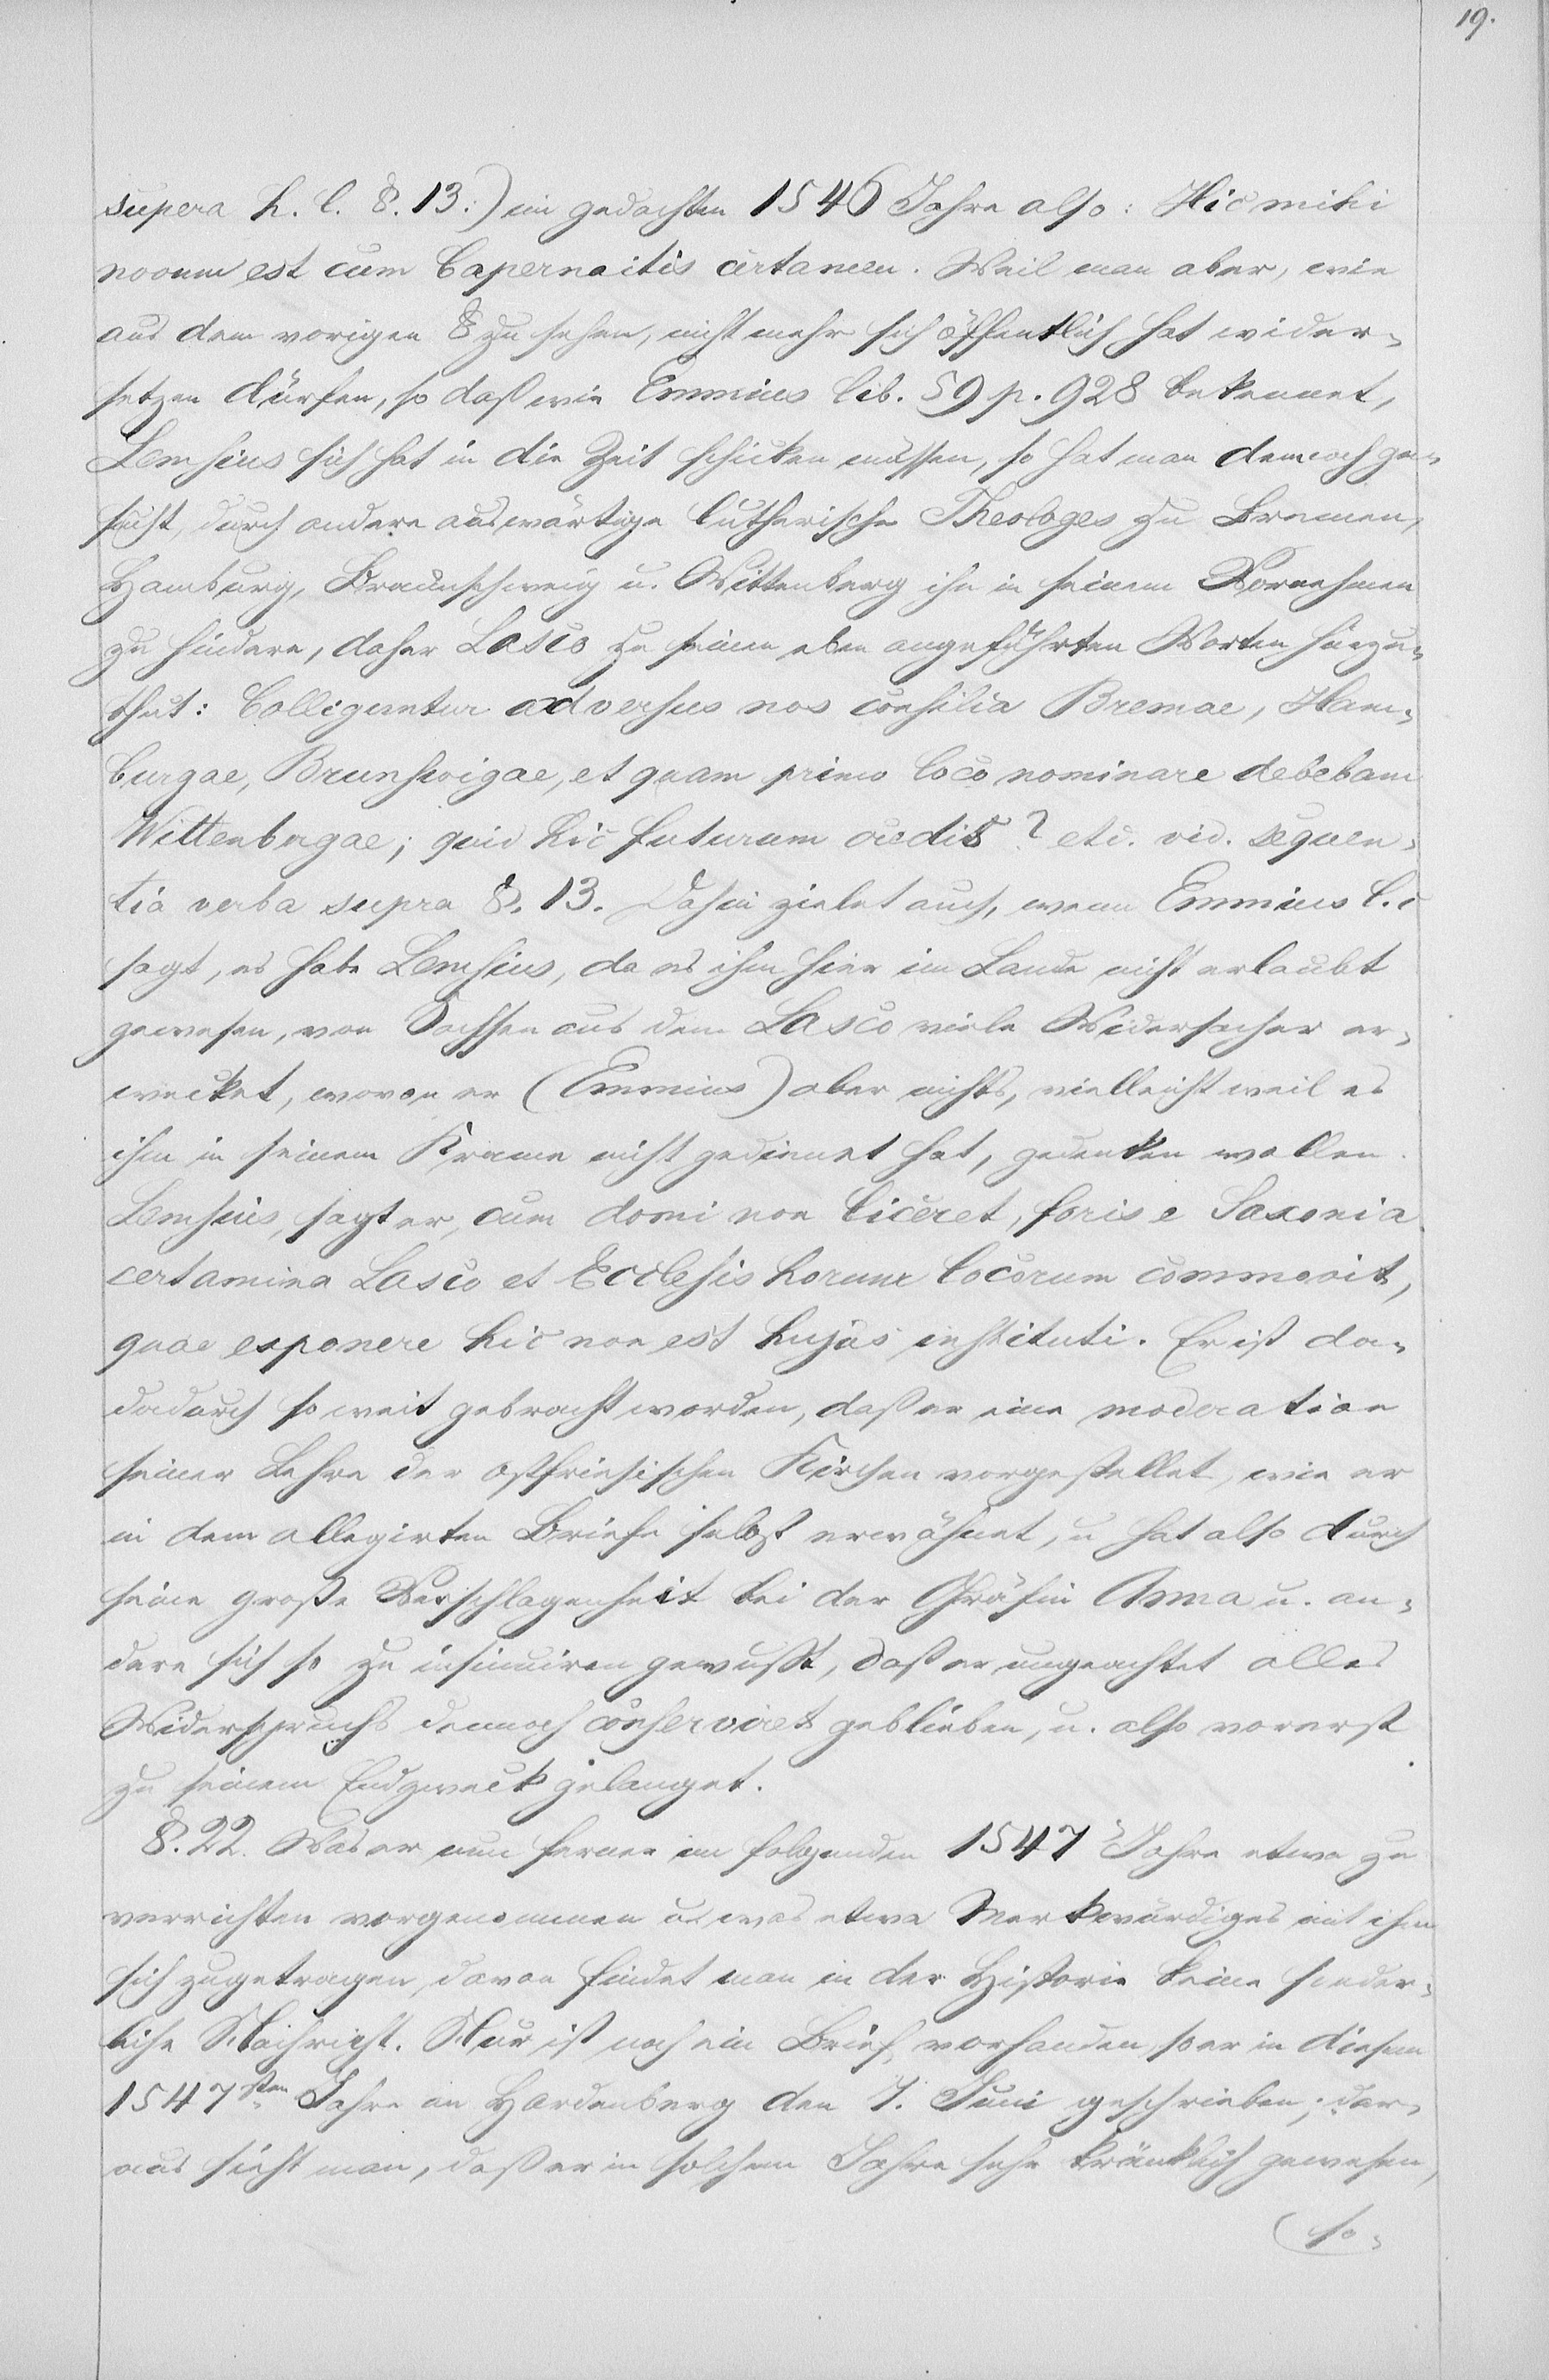 19.
supera h. l. §. 13.) im gedachten 1546 Jahre also: Hic mihi
novum est cum Capernaitis certamen. Weil man aber, wie
aus dem vorigen § zu sehen, nicht mehr sich öffentlich hat wider-
setzen dürfen, so daß wie Emmius lib. 59 p. 928 bekennet,
Lemsius sich hat in die Zeit schicken müssen, so hat man dennoch ge-
sucht, durch andere auswärtige lutherische Theologes zu Bremen,
Hamburg, Braunschweig u. Wittenberg ihn in seinem Vornehmen
zu hindern, daher Lasco zu seinen eben angeführten Worten hinzu-
thut: Colliguntur adversus nos consilia Bremae, Ham-
burgae, Brunswigae, et quam primo loco nominare debebam
Wittenbergae; quid hic futurum credis? etc. vid. sequen-
tia verba supra §. 13. Dahin zielet auch, wenn Emmius l. c
sagt, es habe Lemsius, da es ihm hier im Lande nicht erlaubt
gewesen, von Sachsen aus dem Lasco viele Widersacher er-
wecket, wovon er (Emmius) aber nichts, vielleicht weil es
ihm in seinem Krame nicht gedienet hat, gedenken wollen.
Lemsius, sagt er, cum domi non liceret, foris e Saxonia
certamina Lasco et Ecclesis horum locorum commovit,
quae exponere hic non est hujus instituti. Er ist da-
dadurch so weit gebracht worden, daß er eine moderation
seiner Lehre der ostfriesischen Kirchen vorgestellet, wie er
in dem allegirten Briefe selbst erwähnet, u hat also durch
seine große Verschlagenheit bei der Gräfin Anna u. an-
dere sich so zu insinuiren gewußt, daß er ungeachtet alles
Widerspruchs dennoch conserviret geblieben, u. also vorerst
zu seinem Endzweck gelanget.
§. 22. Was er nun ferner im folgenden 1547 Jahre etwa zu
verrichten vorgenommen u. was etwa Merkwürdiges mit ihm
sich zugetragen, davon findet man in der Historie keine sonder-
liche Nachricht. Nur ist noch ein Brief vorhanden, so er in diesem
1547sten Jahre an Hardenberg den 7. Juni geschrieben; dar-
aus sieht man, daß er in solchem Jahre sehr kränklich gewesen,
so-